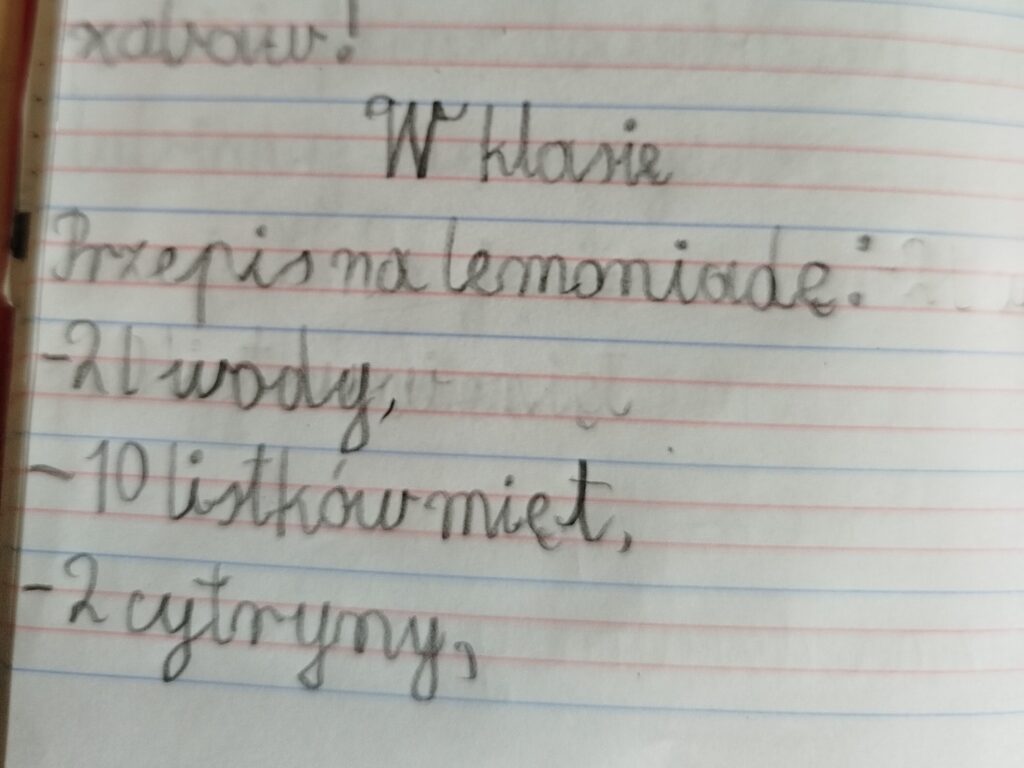 zabaw!
W klasie
Przepis na lemoniadę:
-2l wody,
-10 listków mięt,
-2 cytryny,